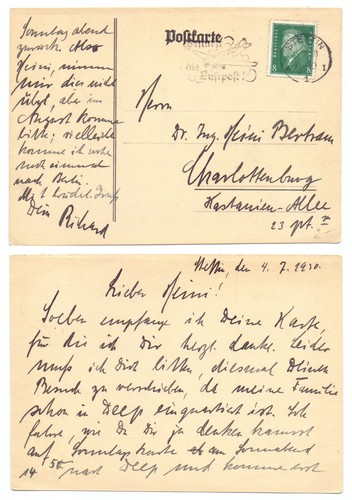 Sonntag abend
zurück. Also
Heini, nimm
mir dies nicht
übel, aber im
August komme
bitte; vielleicht
komme ich vorher
noch einmal
nach Berlin.
Mit herzl. Gruß
Dein Richard
Postkarte
die
Luftpost!
8
Herrn
Dr. Ing. Heini Bertram
Charlottenburg
Kastanien-Allee
23 pt. r.
Stettin, den 4. 7. 1930.
Lieber Heini!
Soeber empfange ich Deine Karte,
für die ich Dir herzl. danke. Leider
muß ich Dich bitten, diesmal Deinen
Besuch zu verschieben, da meine Familie
schon in Deep einquartiert ist. Ich
fahre, wie Du Dir denken kannst
auf Sonntagskarte ab am Sonnabend
14 50 nach Deep und komme erst